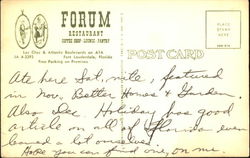 FORUM
RESTAURANT
COFFEE SHOP LOUNGE PANTRY
Las Olas & Atlantic Boulevards on A1A
JA 4-3393 Fort Lauderdale, Florida
Free Parking on Premises
POST CARD
Ate here Sat. nite, featured
in Nov. Better Homes & Garden.
Also Dec. Holiday has good
article on all of Florida even
learned a lot ourselves.
Hope you can find one, on me.